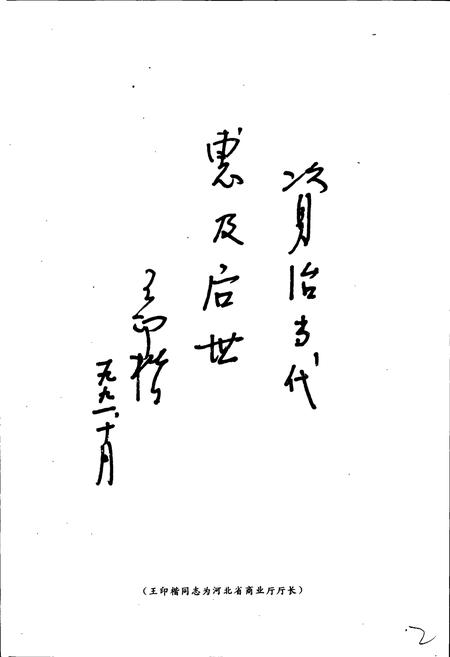 资治当代
惠及后世
王印楷
一九九一.十月
（王印楷同志为河北省商业厅厅长）
2